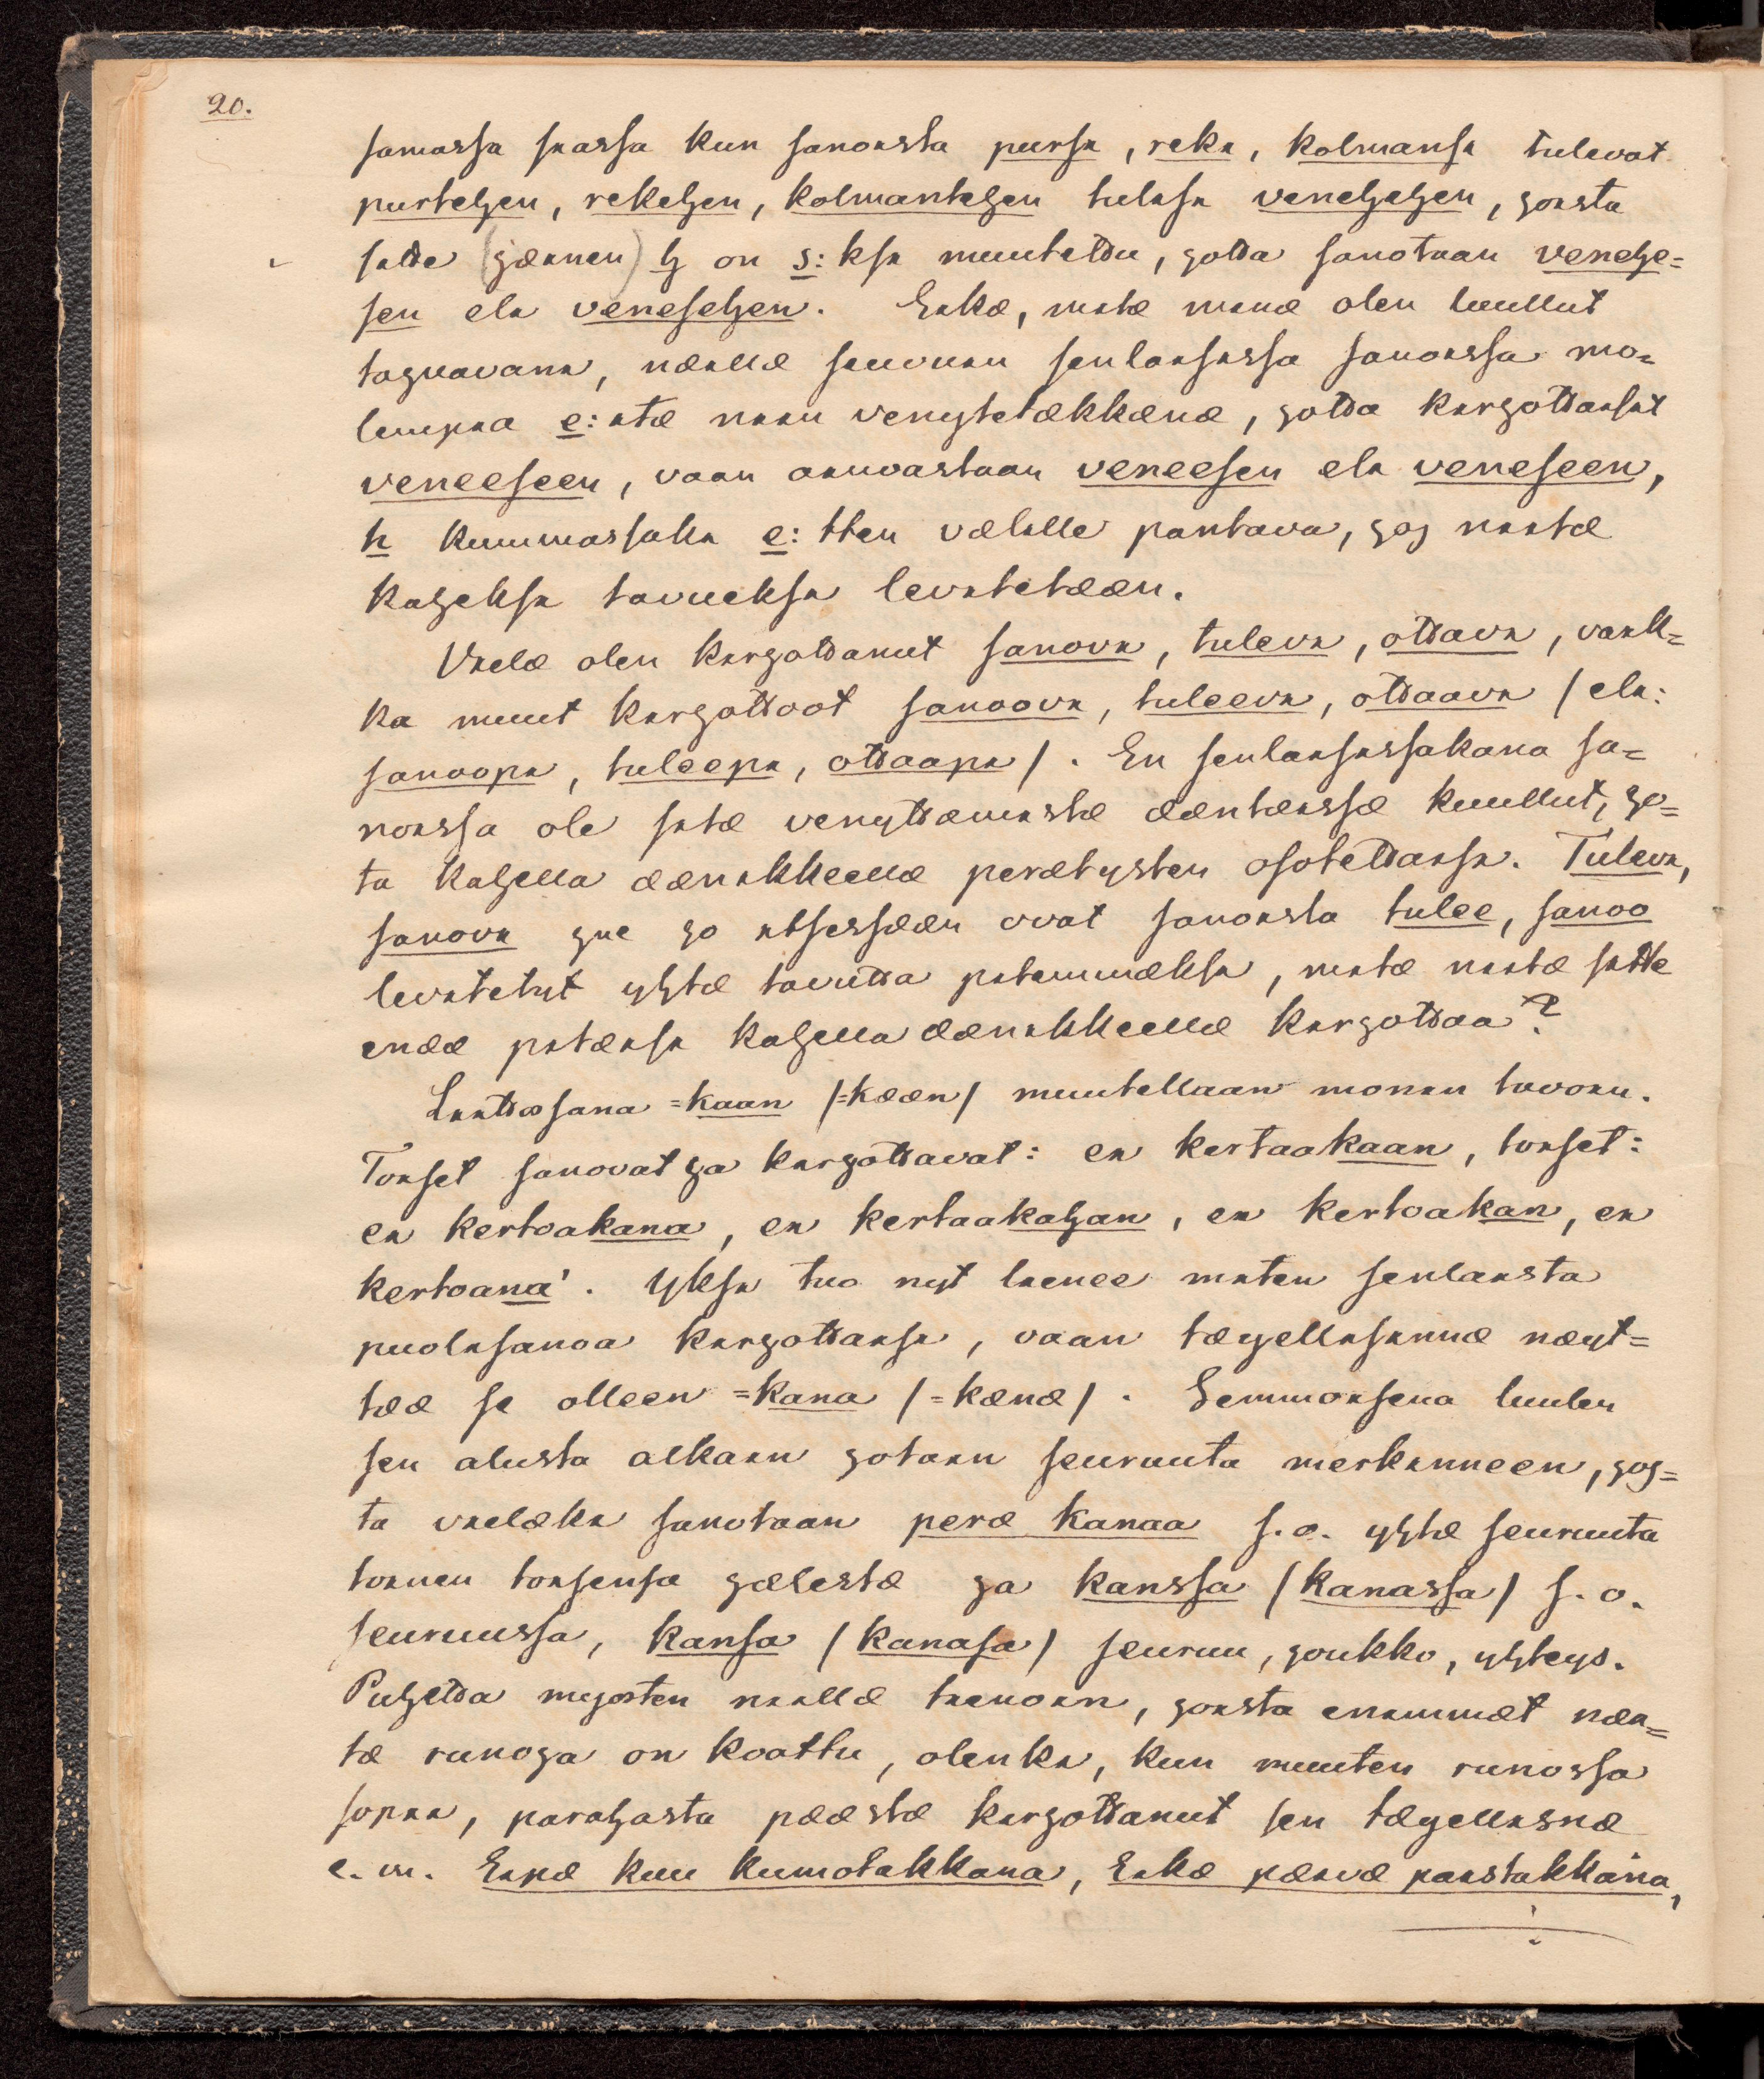 20.
samassa siassa kun sanoista pursi, reki, kolmansi tulevat
purtehen, rekehen, kolmantehen tulisi venehehen, josta
sitte (jæinen) h on s:ksi muutettu, jotta sanotaan venehe=
sen eli venesehen. Eikæ, mitæ minæ olen luullut
tajuavani, næillæ seuvuin senlaisissa sanoissa mo=
lempia e:itæ niin venytetækkænæ, jotta kirjottaisit
veneeseen, vaan ainoastaan veneesen eli veneseen,
h kummassaki e:tten vælille pantava, jos niitæ
kaheksi tavueksi levitetææn.
Vielæ olen kirjottanut sanovi, tulevi, ottavi, vaik=
ka muut kirjottoot sanoovi, tuleevi, ottaavi / eli:
sanoopi, tuleepi, ottaapi /. En senlaisissakana sa=
noissa ole sitæ venyttæmistæ ææntæissæ kuullut, jo=
ta kahella æænikkeellæ perætysten osotettaisi. Tulevi,
sanovi jne jo itsessææn ovat sanoista tulee, sanoo
levitetyt yhtæ tavutta pitemmæksi, mitæ niitæ sitte
enææ pitæisi kahella æænikkeellæ kirjottaa?
Liittosana =kaan /=kææn/ muutellaan monin tavoin.
Toiset sanovat ja kirjottavat: ei kertaakaan, toiset:
ei kertoakana, ei kertaakahan, ei kertoakan, ei
kertoana'. Yksi tuo nyt lienee miten senlaista
puolisanoa kirjottaisi, vaan tæyellisinnæ næyt=
tææ se olleen =kana /=kænæ/. Semmoisena luulen
sen alusta alkain jotain seuruuta merkinneen, jos=
ta vielæki sanotaan peræ kanaa s.o. yhtæ seuruuta
toinen toisensa jælestæ ja kanssa /kanassa/ s.o.
seuruussa, kansa /kanasa/ seuruu, joukko, yhteys.
Puhetta myösten niillæ tienoin, joista enimmæt næi=
tæ runoja on koottu, olenki, kun muuten runossa
sopii, parahasta pææstæ kirjottanut sen tæyellisnæ
e.m. Eipæ kuu kumotakkana, Eikæ pæivæ paistakkana,